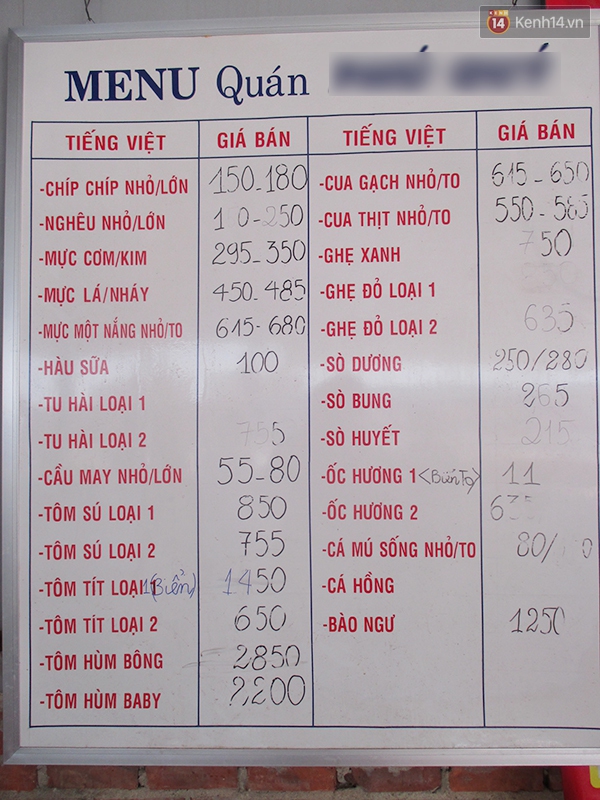 14 Kenh14.vn
MENU Quán
TIẾNG VIỆT GIÁ BÁN
-CHÍP CHÍP NHỎ/LỚN 150-180
-NGHÊU NHỎ/LỚN 1 0-250
-MỰC CƠM/KIM 295-350
-MỰC LÁ/NHÁY 450-485
-MỰC MỘT NẮNG NHỎ/TO 615-680
-HÀU SỮA 100
-TU HÀI LOẠI 1
-TU HÀI LOẠI 2 755
-CẦU MAY NHỎ/LỚN 55-80
-TÔM SÚ LOẠI 1 850
-TÔM SÚ LOẠI 2 755
-TÔM TÍT LOẠI 1 (Biển) 1450
-TÔM TÍT LOẠI 2 650
-TÔM HÙM BÔNG 2850
-TÔM HÙM BABY 2200
TIẾNG VIỆT GIÁ BÁN
-CUA GẠCH NHỎ/TO 615-650
-CUA THỊT NHỎ/TO 550-585
-GHẸ XANH 750
-GHẸ ĐỎ LOẠI 1
-GHẸ ĐỎ LOẠI 2 635
-SÒ DƯƠNG 250/280
-SÒ BUNG 265
-SÒ HUYẾT 215
-ỐC HƯƠNG 1 11
-ỐC HƯƠNG 2
-CÁ MÚ SỐNG NHỎ/TO 80/
-CÁ HỒNG
-BÀO NGƯ 1250